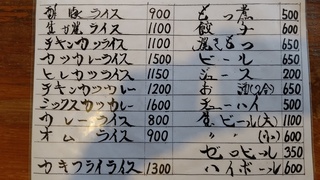 酢豚ライス 900
生姜ライス 1100
チキンカツライス 1100
カツカレーライス 1500
ヒレカツライス 1150
チキンカツカレー 1200
ミックスカツカレー 1600
カレーライス 800
オムライス 900
カキフライライス 1300
もつ煮 500
餃子 600
焼きもつ 650
ビール 650
ジュース 200
お酒(2合) 650
チューハイ 500
生ビール(大) 1100
〃 〃 (小) 600
ゼロビール 350
ハイボール 600